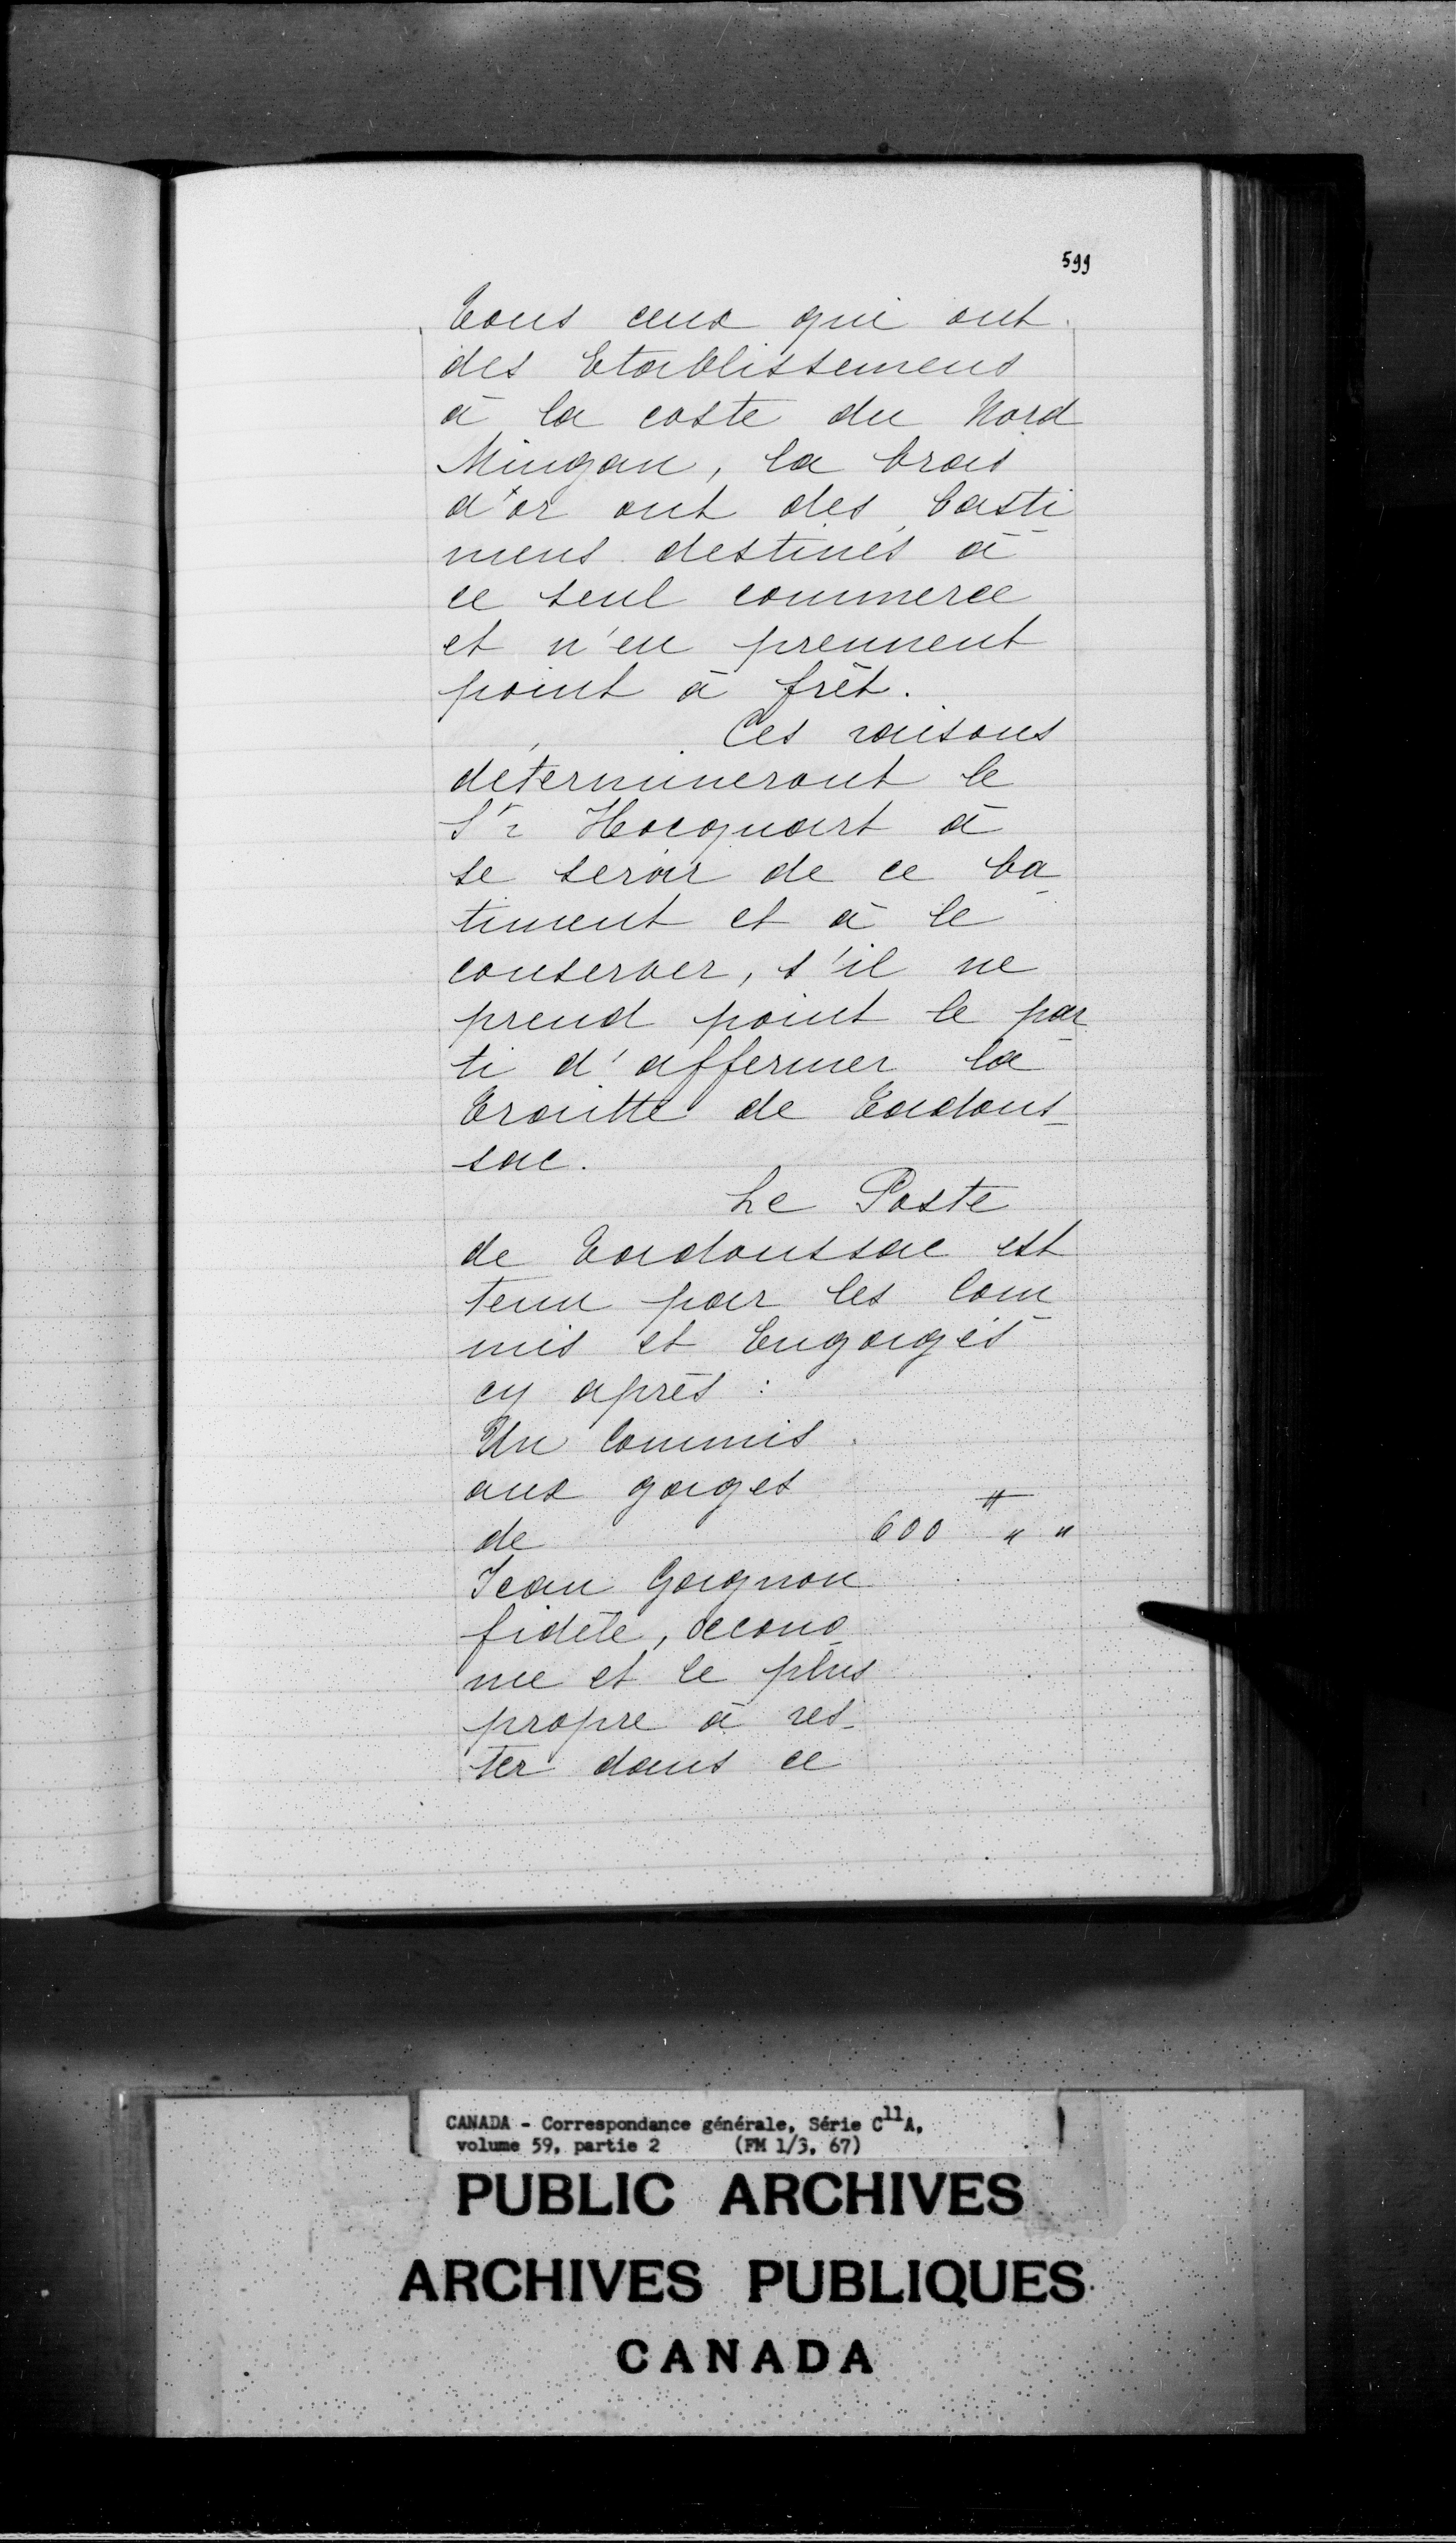 599
Tous ceux qui ont
des Etablissemens
à la coste du Nord
Mingan, la brais
d'or ont des basti-
mens destinés à
ce seul commerce
et n'en prennent
point à frêt.
Ces raisons
determineront le
Sr Hocquart à
se servir de ce ba-
timent et à le
conserver, s'il ne
prend point le par-
ti d'affermer la
Traitte de Tadous-
sac.
Le Poste
de Tadoussac est
tenu par les Com-
mis et Engagés
cy après :
Un Commis
aux gages
de 600 ₶ " "
Jean Gagnon
fidèle, oecono-
me et le plus
propre à res-
ter dans ce
CANADA - Correspondance générale, Série C11A,
volume 59, partie 2 (FM 1/3, 67)
PUBLIC ARCHIVES
ARCHIVES PUBLIQUES
CANADA